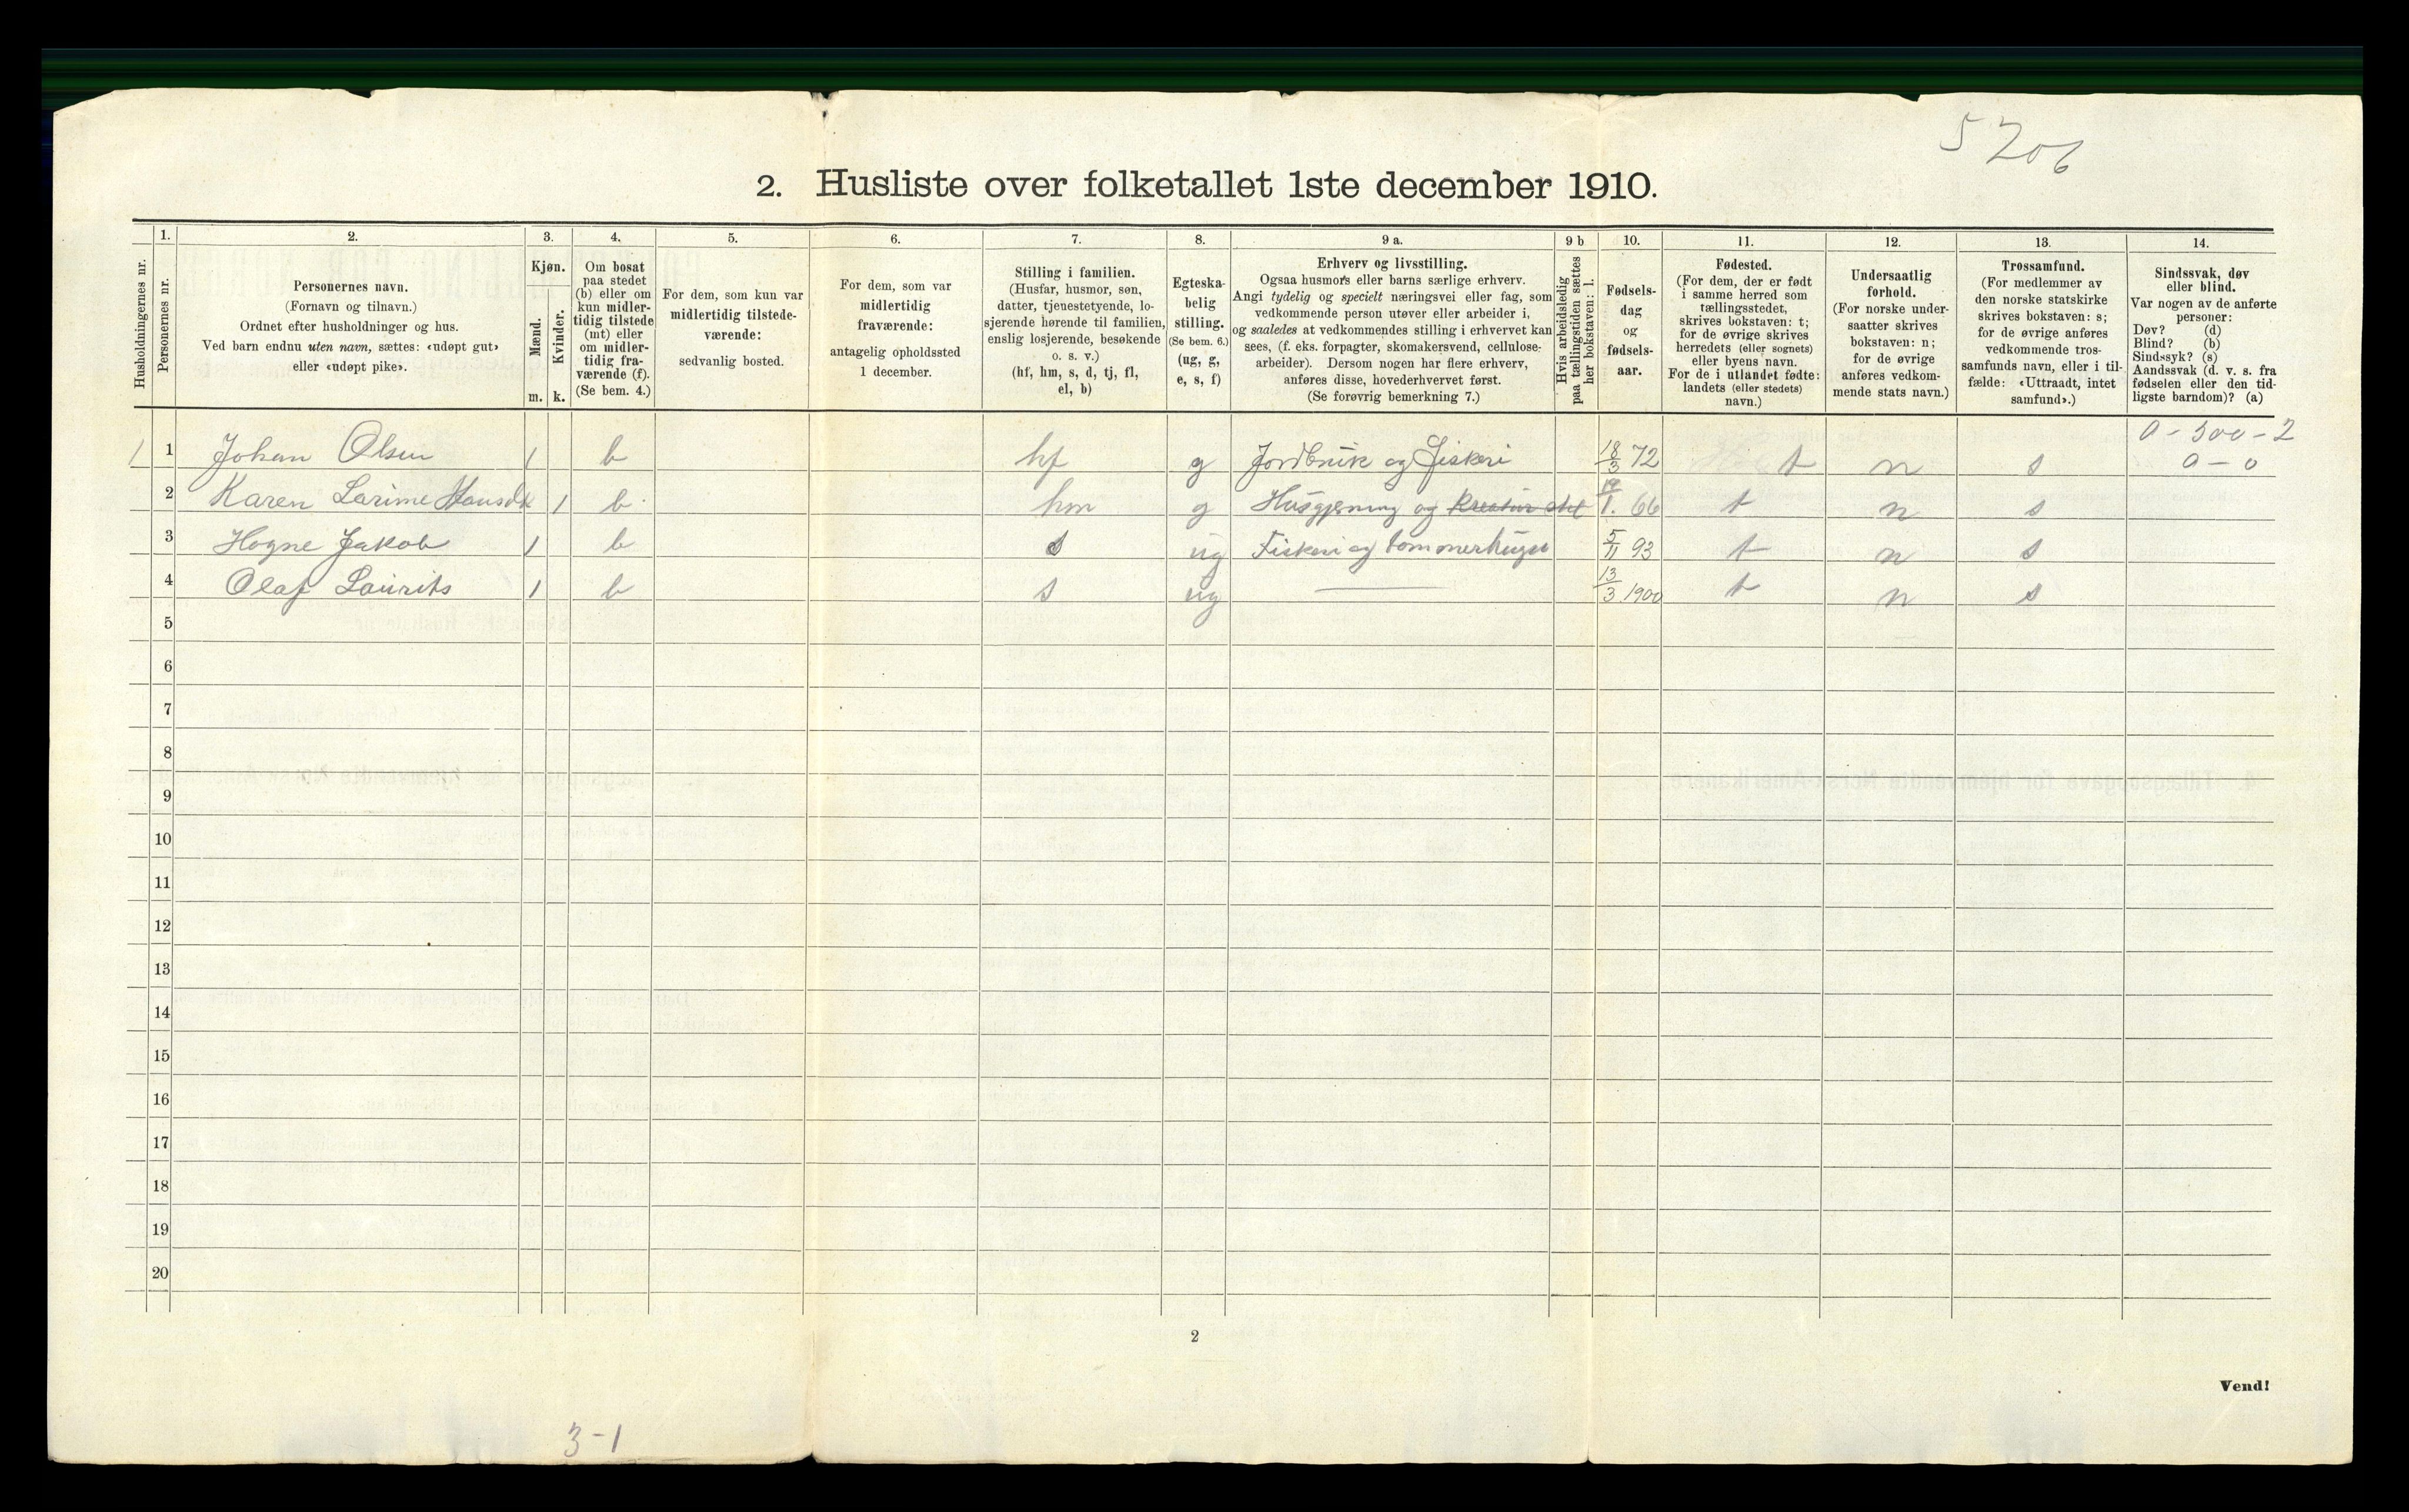 5206
2. Husliste over folketallet 1ste december 1910.
Husholdningernes nr.
1.
Personernes nr.
2.
Personernes navn.
(Fornavn og tilnavn.)
Ordnet efter husholdninger og hus.
Ved barn endnu uten navn, sættes: «udøpt gut»
eller «udøpt pike».
3.
Kjøn.
Mænd.
Kvinder.
m. k.
4.
Om bosat
paa stedet
(b) eller om
kun midler-
tidig tilstede
(mt) eller
om midler-
tidig fra-
værende (f).
(Se bem. 4.)
5.
For dem, som kun var
midlertidig tilstede-
værende:
sedvanlig bosted.
6.
For dem, som var
midlertidig
fraværende:
antagelig opholdssted
1 december.
7.
Stilling i familien.
(Husfar, husmor, søn,
datter, tjenestetyende, lo-
sjerende hørende til familien,
enslig losjerende, besøkende
o. s. v.)
(hf, hm, s, d, tj, fl,
el, b)
8.
Egteska-
belig
stilling.
(Se bem. 6.)
(ug, g,
e, s, f)
9 a.
Erhverv og livsstilling.
Ogsaa husmors eller barns særlige erhverv.
Angi tydelig og specielt næringsvei eller fag, som
vedkommende person utøver eller arbeider i,
og saaledes at vedkommendes stilling i erhvervet kan
sees, (f. eks. forpagter, skomakersvend, cellulose-
arbeider). Dersom nogen har flere erhverv,
anføres disse, hovederhvervet først.
(Se forøvrig bemerkning 7.)
9 b
Hvis arbeidsledig
paa tællingstiden sættes
her bokstaven: l.
10.
Fødsels-
dag
og
fødsels-
aar.
11.
Fødested.
(For dem, der er født
i samme herred som
tællingsstedet,
skrives bokstaven: t;
for de øvrige skrives
herredets (eller sognets)
eller byens navn.
For de i utlandet fødte:
landets (eller stedets)
navn.)
12.
Undersaatlig
forhold.
(For norske under-
saatter skrives
bokstaven: n;
for de øvrige
anføres vedkom-
mende stats navn.)
13.
Trossamfund.
(For medlemmer av
den norske statskirke
skrives bokstaven: s;
for de øvrige anføres
vedkommende tros-
samfunds navn, eller i til-
fælde: «Uttraadt, intet
samfund».)
14.
Sindssvak, døv
eller blind.
Var nogen av de anførte
personer:
Døv? (d)
Blind? (b)
Sindssyk? (s)
Aandssvak (d. v. s. fra
fødselen eller den tid-
ligste barndom)? (a)
0 - 500 - 2
1 1 Johan Olsen 1 b hf g Jordbruk og Fiskeri 18/3 72 t n s 0 - 0
2 Karen Larine 1 b hm g Husgjerning og 1. 66 t n s
3 Hogne Jakob 1 b s ug Fiskeri og tommerhuger 5/11 93 t n s
4 Olaf Laurits 1 b s ug — 13/3 1900 t n s
5
6
7
8
9
10
11
12
13
14
15
16
17
18
19
20
2
Vend!
3-1